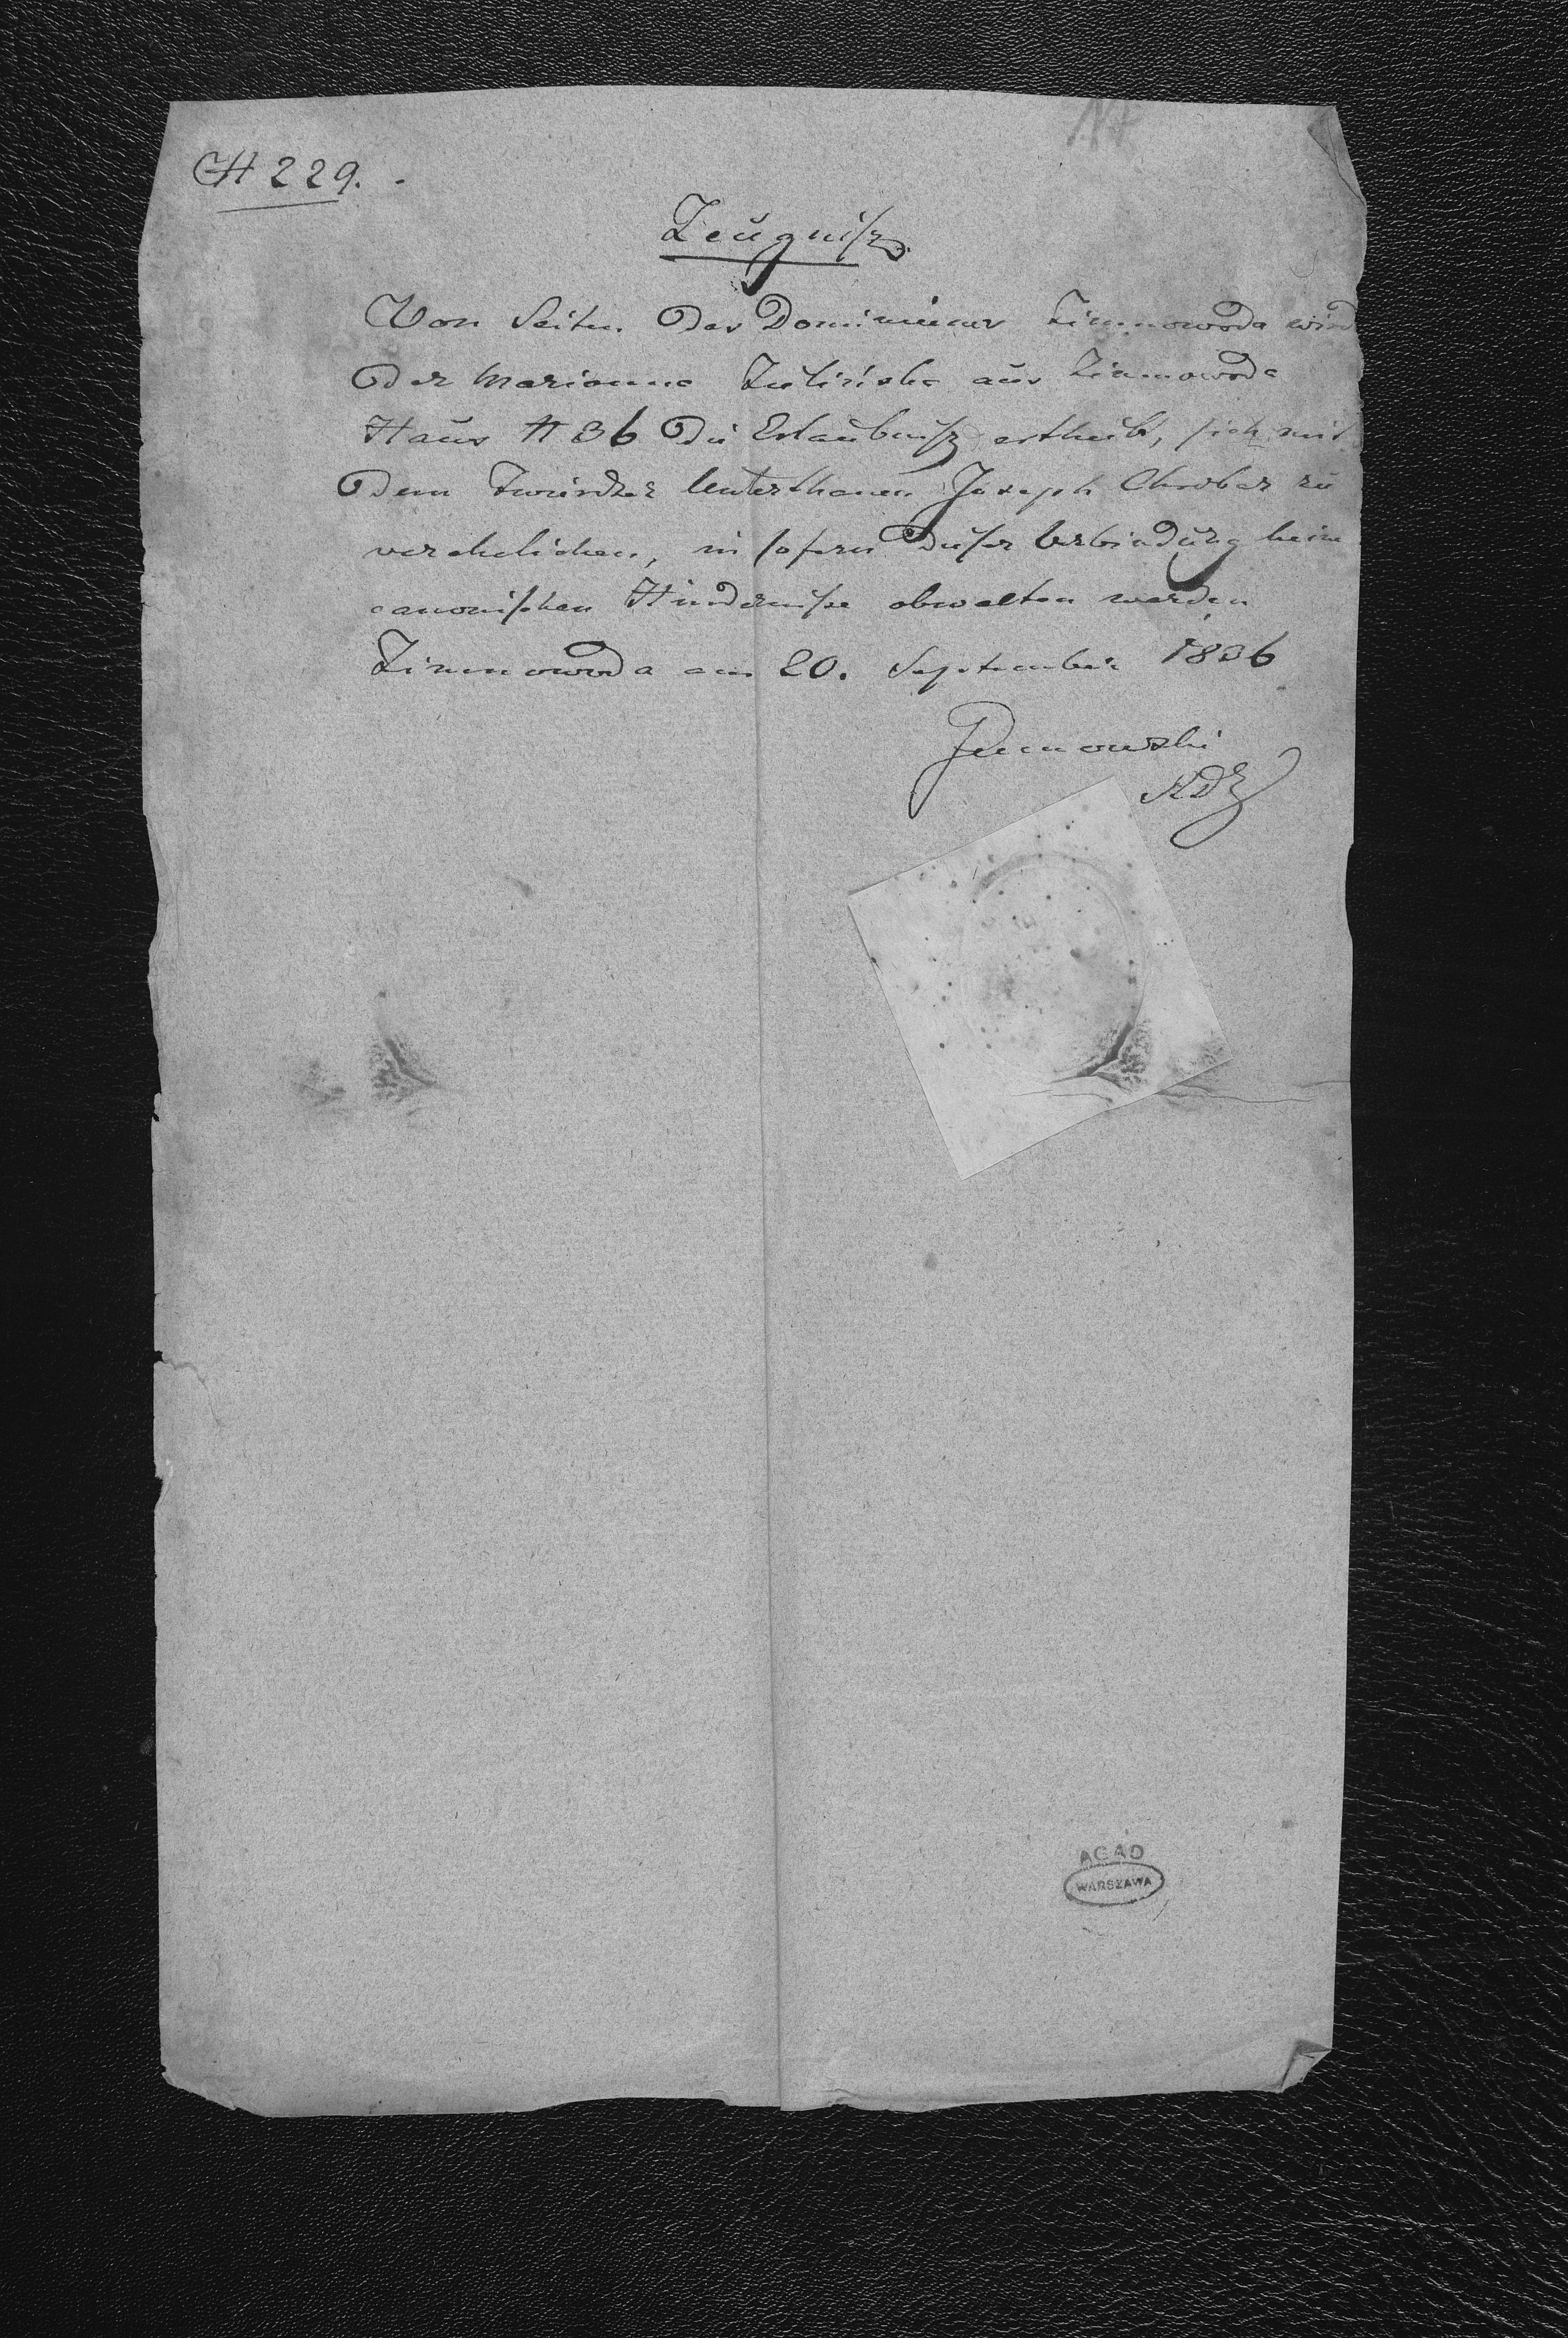 № 229.
17
Zeugniß
Von Seiten des Dominiums Zimnowoda wird
der Marianna Zielinska aus Zimnowoda
Haus N 36 die Erlaubniß ertheilt, sich mit
dem Unterthanen Joseph Chrobak zu
verehelichen, in sofern dieser Verbindung keine
canonischen Hinderniße obwalten werden
Zimnowoda am 20. September 1836
AGAD
WARSZAWA